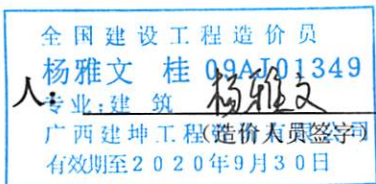 全国建设工程造价员
杨雅文 桂 09AJ01349
人：
专业:建 筑 杨雅文
广西建坤工程 公司
(造价人员签字)
有效期至2020年9月30日